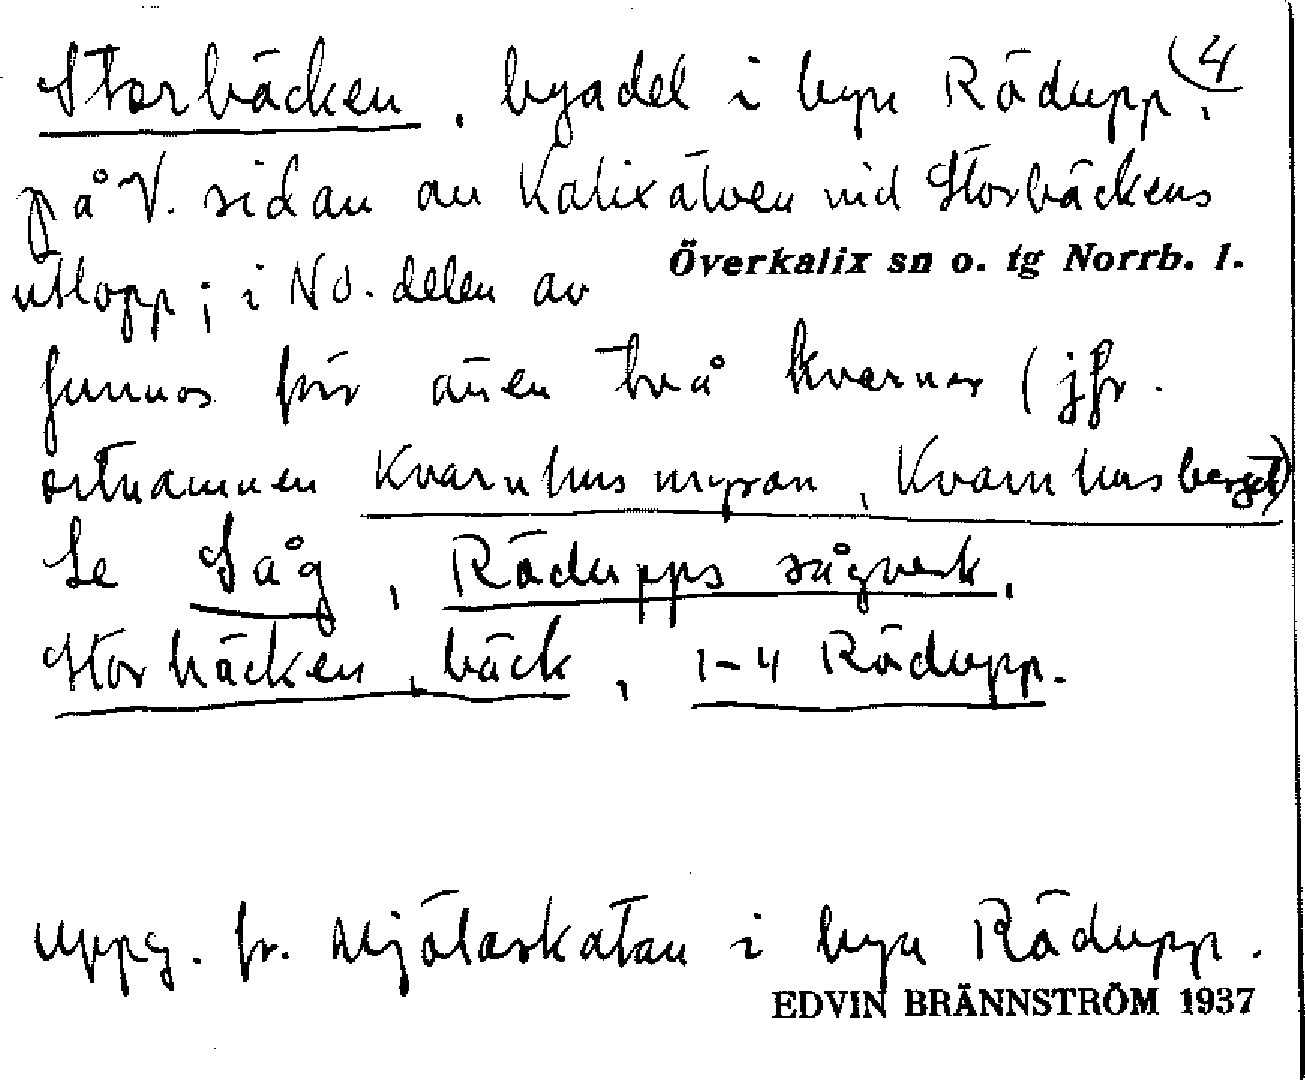 Storbäcken, byadel i byn Rödupp, (4
på V. sidan av Kalixälven vid Storbäckens
Överkalix sn o. tg Norrb. l.
utlopp; i NO. delen av
funnos förr även två kvarnar (jfr.
ortnamnen Kvarnhusmyran, Kvarnhusberget)
Se Såg, Rödupps sågverk,
Storbäcken, bäck, 1-4 Rödupp.
Uppg. fr. Mjölaskatan i byn Rödupp.
EDVIN BRÄNNSTRÖM 1937